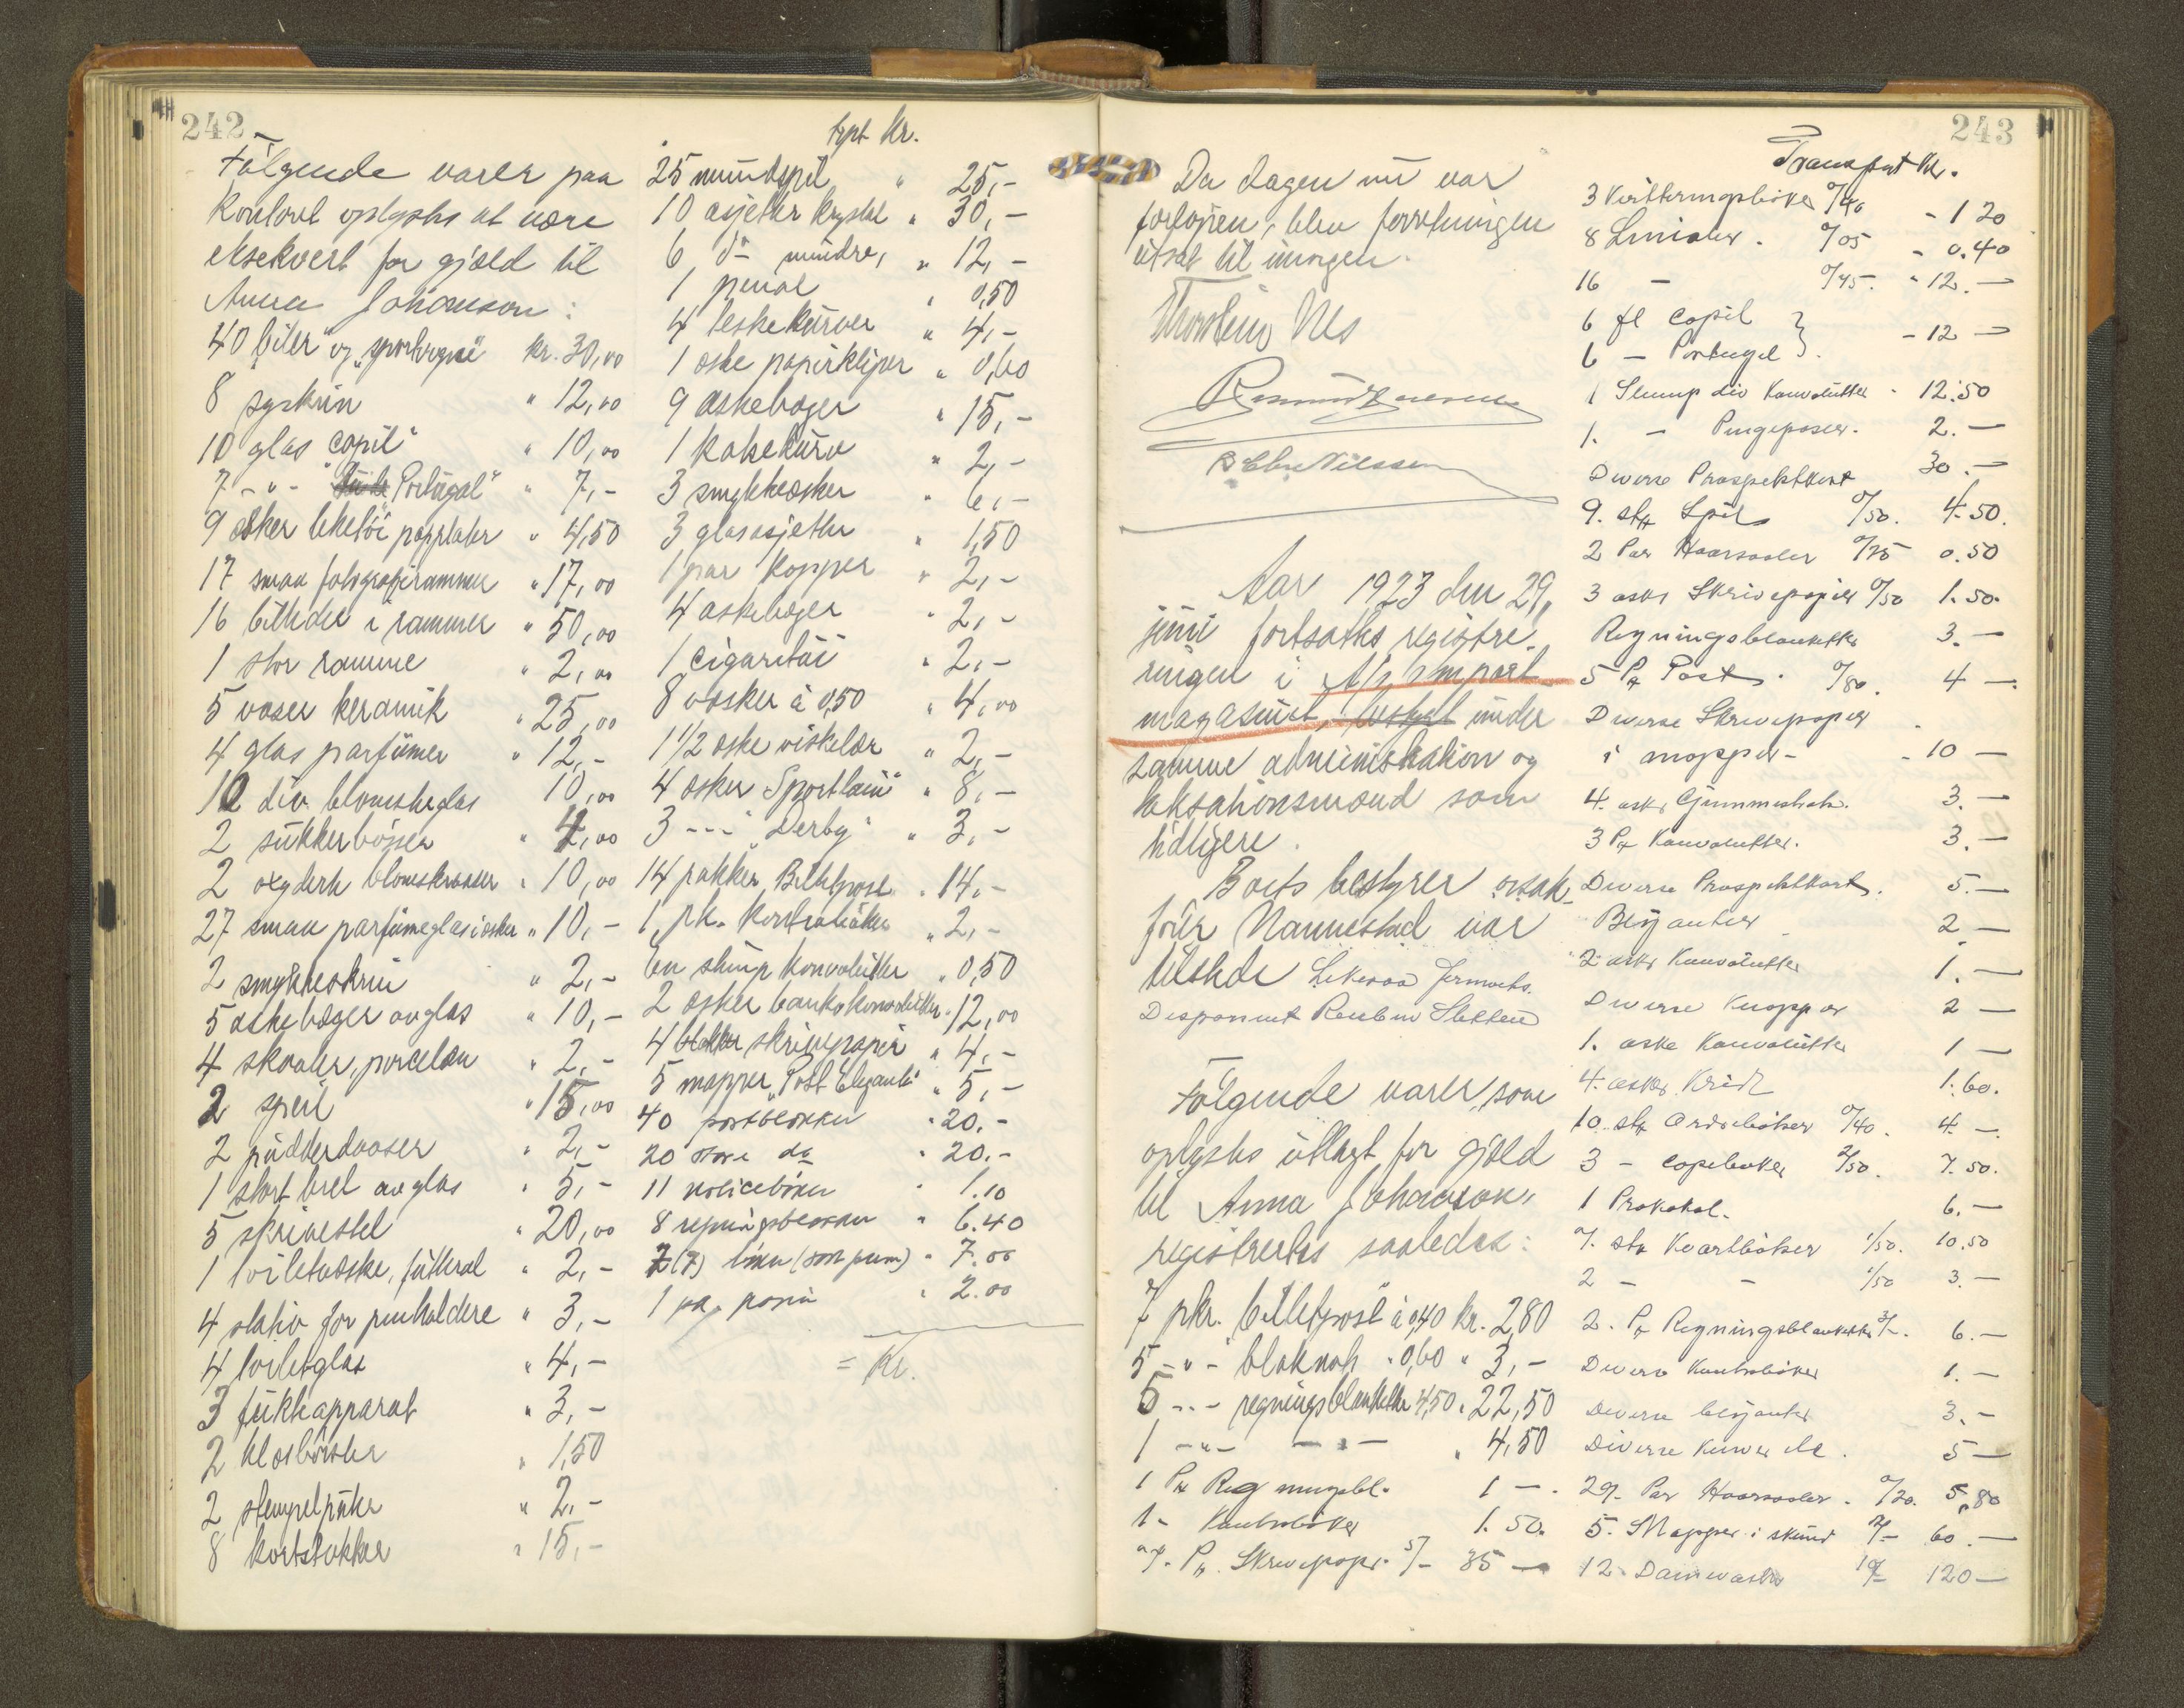 242
Følgende varer paa
kontoret oplystes at være
eksekvert for gjæld til
Anna Johanson:
40 biler og "sportvogne" kr. 30,00
8 syskrin " 12,00
10 glas "Copil" " 10,00
7 -"- "Portugal" " 7,-
9 æsker leketøi papptaler " 4,50
17 smaa fotografirammer " 17,00
16 billeder i rammer " 50,00
1 stor ramme " 2,00
5 vaser keramik " 25,00
4 glas parfumer " 12,-
10 div. blomsterglas 10,00
2 sukkerbøsser " 4,00
2 oxyderte blomstervaser " 10,00
27 smaa parfumeglas i æsker " 10,-
2 smykkeskrin " 2,-
5 askebæger av glas " 10,-
4 skaaler, porcelæn " 2,-
2 speil " 15,00
2 pudderdaaser " 2,-
1 stort bret av glas " 5,-
5 skrivestel " 20,00
1 toiletvæske, futteral " 2,-
4 stativ for penholdere " 3,-
4 toiletglas " 4,-
3 fukteapparat " 3,-
2 klæsbørster " 1,50
2 stempelputer " 2,-
8 kortstokker " 15,-
Trpt kr.
25 mundspil " 25,-
10 asjetter krystal " 30,-
6 do mindre, " 12,-
1 penal " 0,50
4 veskekurver " 4,-
1 æske papirklyper " 0,60
9 askebæger " 15,-
1 kakekurv " 2,-
3 smykkeæsker " 6,-
3 glasasjetter " 1,50
1 par kopper " 2,-
4 askebæger " 2,-
1 cigaretui " 2,-
8 væsker à 0,50 " 4,00
1 1/2 æske viskelær " 2,-
4 æsker "Sportlain" " 8,-
3 --- "Derby" " 3,-
14 pakker Billetpost " 14,-
1 pk. kontrabøker " 2,-
En slump konvolutter " 0,50
2 æsker bankokonvolutter " 12,00
4 blokker skrivepapir " 4,-
5 mapper "Post Elegante" " 5,-
40 postblokker " 20.-
20 store do " 20.-
11 noticebøker " 1.10
8 regningsblokker " 6.40
7 (7) bøker (sort perm) " 7.00
1 pk. papir " 2.00
= Kr.
243
Da dagen nu var
forløpen, blev forretningen
utsat til imorgen.
Thorstein Nes
Aar 1923 den 29.
juni fortsattes registre-
ringen i A/s Import
magasinet, under
samme administration og
taksationsmænd som
tidligere.
Boets bestyrer o.r.sak-
fører Nannestad var
tilstede Likesaa firmaets
Disponent Reuben Sletten
Følgende varer, som
oplystes utlagt for gjæld
til Anna Johanson,
registrertes saaledes:
7 pkr. "billetpost" à 0,40 kr. 2,80
5 -"- bloknot " 0,60 " 3,-
5 -"- regningsblanketter 4,50 " 22,50
1 -"- -"- " 4,50
1 Pk Regningsbl. 1 -.
1 - Kontrabøker 1. 50.
7. Pk. Skrivepapir 5/- 35 -
Transport Kr.
3 Kvitteringsbøker 0/40 - 1 20
8 Linialer. 0/05 - 0.40
16 - 0/75. " 12. -
6 fl Copil }
6 - Portugal } - 12 -
1 Slump div Konvolutter - 12.50
1. - Pengeposer. 2. -
Diverse Prospektkort 30. -
9. stk Spil 0/50. 4.50.
2 Par Haarsaaler 0/25 0.50
3 æsker Skrivepapir 0/50 1.50.
Regningsblanketter 3. -
5 Pk Post. 0/80. 4 -.
Diverse Skrivepapir
i mapper - - 10 -
4. æsker Gummistrik. 3. -
3 Pk Konvolutter. 3. -
Diverse Prospektkort. 5. -
Blyanter 2 -
2 æsker Konvolutter 1. -
Diverse Knapper 2 -
1. æske Konvolutter 1 -
4. æsker Kridt 1.60.
10. stk Ordrebøker 0/40. 4. -.
3 - Copibøker 2/50. 7.50.
1 Protokol. 6. -
7. stk Kvartbøker 1/50. 10.50
2 - - 1/50 3. -
2. Pk Regningsblanketter 3/-. 6. -
Diverse Kontrabøker 1. -
Diverse blyanter 3. -
Diverse Kurver etc. 5 -
29. Par Haarsaaler. 0/20. 5,80
5. Mapper i skind 12/- 60. -
12. Damevæsker 10/- 120 -